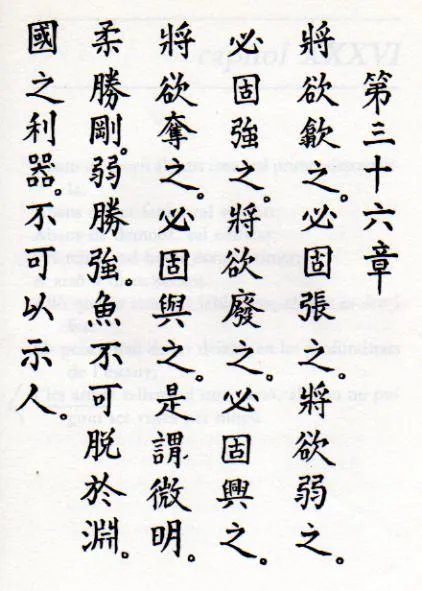 第三十六章
將欲歙之。必固張之。將欲弱之。
必固強之。將欲廢之。必固興之。
將欲奪之。必固與之。是謂微明。
柔勝剛。弱勝強。魚不可脫於淵。
國之利器。不可以示人。
capítol XXXVI